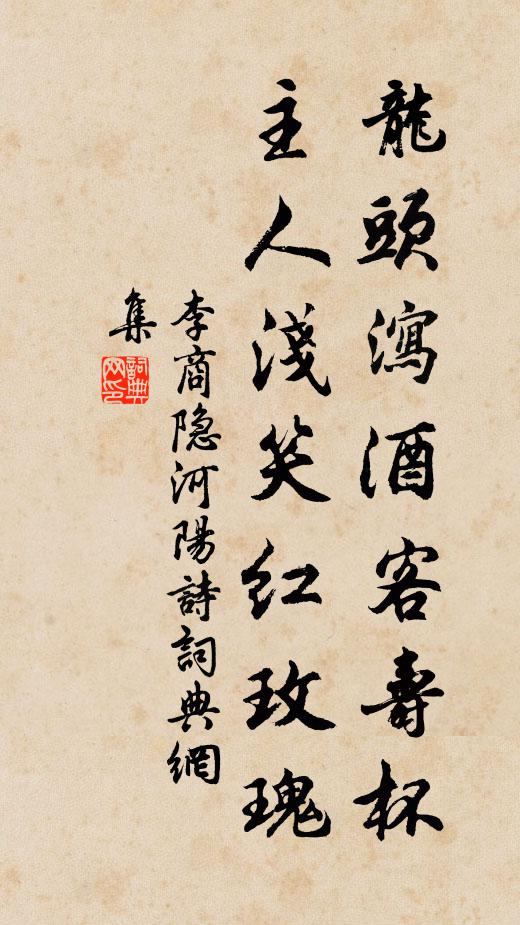 龍頭瀉酒客壽杯
主人淺笑红玫瑰
李商隐河陽詩詞典網
集
詞典
网印